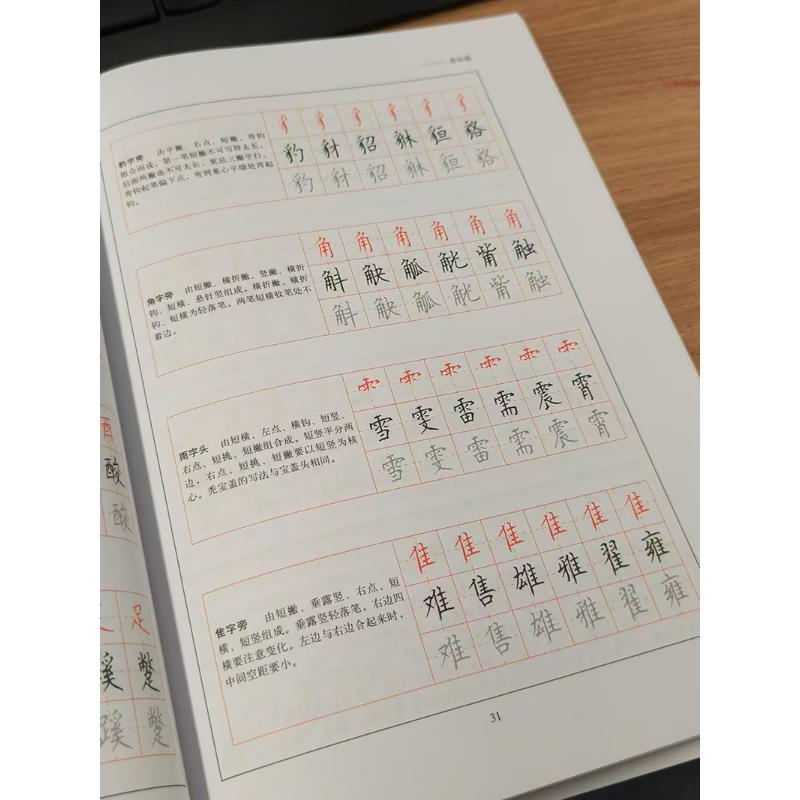 豸 豸 豸 豸 豸 豸
豹字旁 由平撇、右点、短撇、弯钩
组合而成。第一笔短撇不可写得太长，
后面两撇也不可太长，更忌三撇平行。
弯钩起笔偏下点，弯到重心平缩处再起
钩。
豹 豺 貂 貅 貆 貉
豹 豺 貂 貅 貆 貉
角 角 角 角 角 角
角字旁 由短撇、横折撇、竖撇、横折
钩、短横、悬针竖组成。横折撇、横折
钩、短横为轻落笔，两笔短横收笔处不
着边。
斛 觖 觚 觥 觜 触
斛 觖 觚 觥 觜 触
雨字头 由短横、左点、横钩、短竖、
右点、短挑、短撇组合成。短竖平分两
边，右点、短挑、短撇要以短竖为核
心。秃宝盖的写法与宝盖头相同。
雪 雯 雷 需 震 霄
雪 雯 雷 需 震 霄
隹 隹 隹 隹 隹 隹
隹字旁 由短撇、垂露竖、右点、短
横、短竖组成。垂露竖轻落笔，右边四
横要注意变化。左边与右边合起来时，
中间空距要小。
难 售 雄 雅 翟 雍
难 售 雄 雅 翟 雍
31
酉
酸
酸
足
蹊 蹩
蹊 蹩